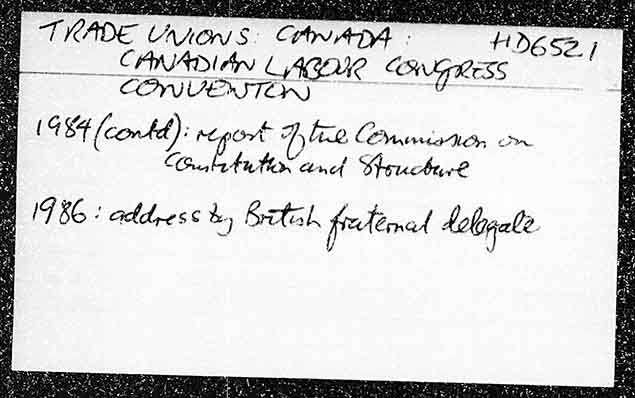 TRADE UNIONS: CANADA: HD6521
CANADIAN LABOUR CONGRESS
CONVENTON
1984 (contd): report of the Commission on
Constitution and Structure
1986: address by British fraternal delegate